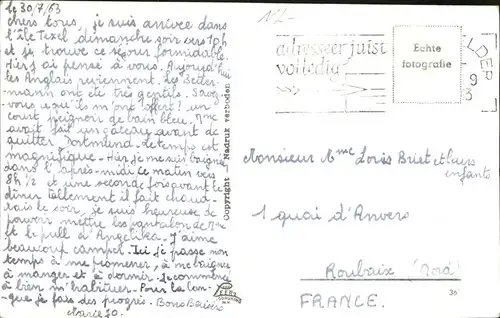 le 30/7/63
chers tous, je suis arrivée dans
l'île Texel dimanche soir vers 19h
et je trouve ce séjour formidable.
Hier j'ai pensé à vous. Aujourd'hui
les Anglais reviennent. les Settel-
mann ont été très gentils. Savez-
vous qu'ils m'ont offert! un
court peignoir de bain bleu. Mme
avait fait un gâteau avant de
quitter Dortmund. le temps est
magnifique. Hier je me suis baignée
dans l'après-midi ce matin vers
8h 1/2 et une seconde fois avant le
dîner tellement il fait chaud.
Mais le soir, je suis heureuse de
pouvoir mettre les pantalon de Mme
et le pull d'Angelika. J'aime
beaucoup camper. Ici je passe mon
temps à me promener, à me baigner
à manger et à dormir. Je commence
à bien m'habituer. Pour la lan-
gue je fais des progrès. Bons Baisers
Marie Jo.
Copyright — Nadruk verboden
adresseer juist
volledig
Echte
fotografie
Monsieur Mme Louis Briet et leurs
enfants
1 quai d'Anvers
Roubaix (Nord)
FRANCE.